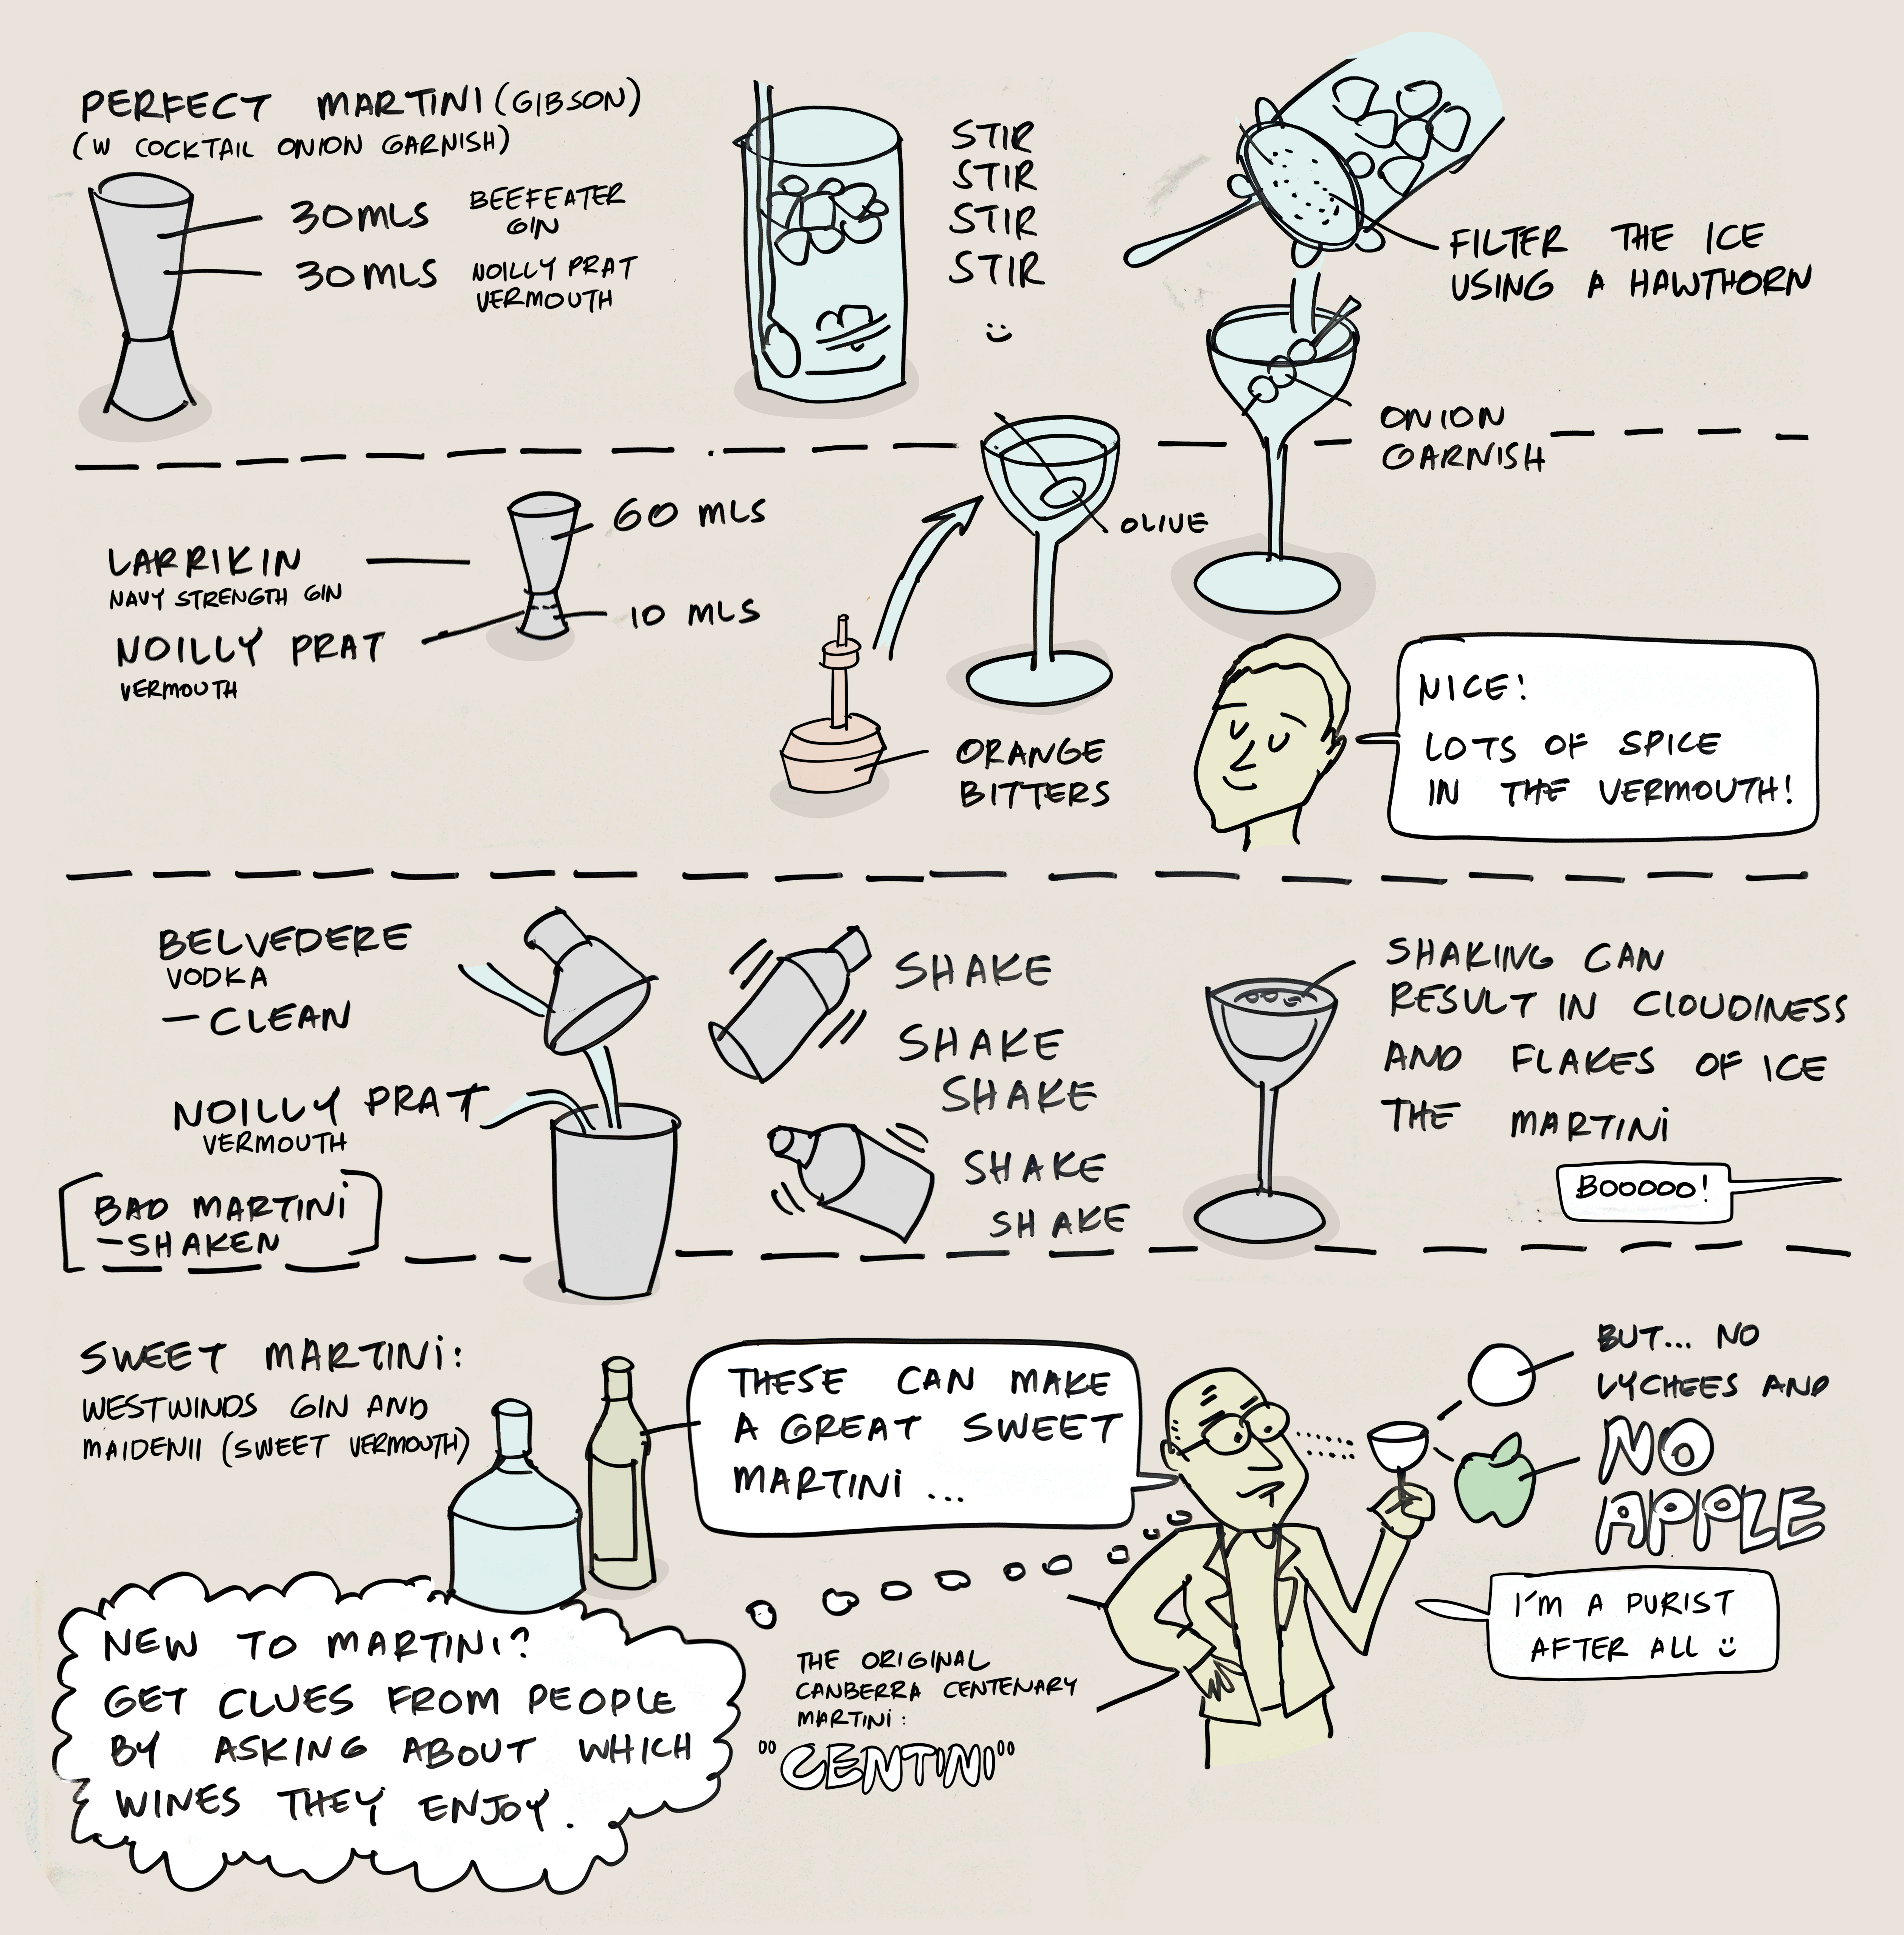 PERFECT MARTINI (GIBSON)
(W COCKTAIL ONION GARNISH)
30MLS BEEFEATER
GIN
30MLS NOILLY PRAT
VERMOUTH
STIR
STIR
STIR
STIR
:)
FILTER THE ICE
USING A HAWTHORN
ONION
GARNISH
LARRIKIN
NAVY STRENGTH GIN
NOILLY PRAT
VERMOUTH
60 MLS
10 MLS
OLIVE
ORANGE
BITTERS
NICE!
LOTS OF SPICE
IN THE VERMOUTH!
BELVEDERE
VODKA
– CLEAN
NOILLY PRAT
VERMOUTH
BAD MARTINI
– SHAKEN
SHAKE
SHAKE
SHAKE
SHAKE
SHAKE
SHAKING CAN
RESULT IN CLOUDINESS
AND FLAKES OF ICE
THE MARTINI
BOOOOO!
SWEET MARTINI:
WESTWINDS GIN AND
MAIDENII (SWEET VERMOUTH)
THESE CAN MAKE
A GREAT SWEET
MARTINI ...
BUT... NO
LYCHEES AND
NO
APPLE
I'M A PURIST
AFTER ALL :)
NEW TO MARTINI?
GET CLUES FROM PEOPLE
BY ASKING ABOUT WHICH
WINES THEY ENJOY.
THE ORIGINAL
CANBERRA CENTENARY
MARTINI:
"CENTINI"